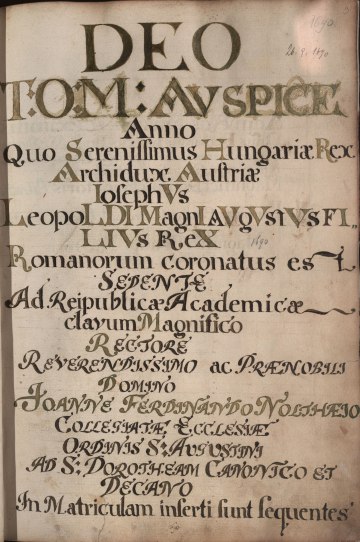 1690
DEO
21. 9. 1690
T:O:M: AVSPICE
Anno
Quo Serenissimus Hungariæ Rex
Archidux Austriæ
IosephVs
LeopoLDI MagnI AVgVsti FI_
LIVs ReX 1690
Romanorum coronatus est
SEDENTE
Ad Reipublicæ Academicæ
clavum Magnifico
RECTORE
REVERENDISSIMO ac PRÆNOBILI
DOMINO
IOANNE FERDINANDO NOLTHÆIO
COLLEGIATÆ ECCLESIÆ
ORDINIS S: AUGUSTINI
AD S: DOROTHEAM CANONICO ET
DECANO
In Matriculam inserti sunt sequentes